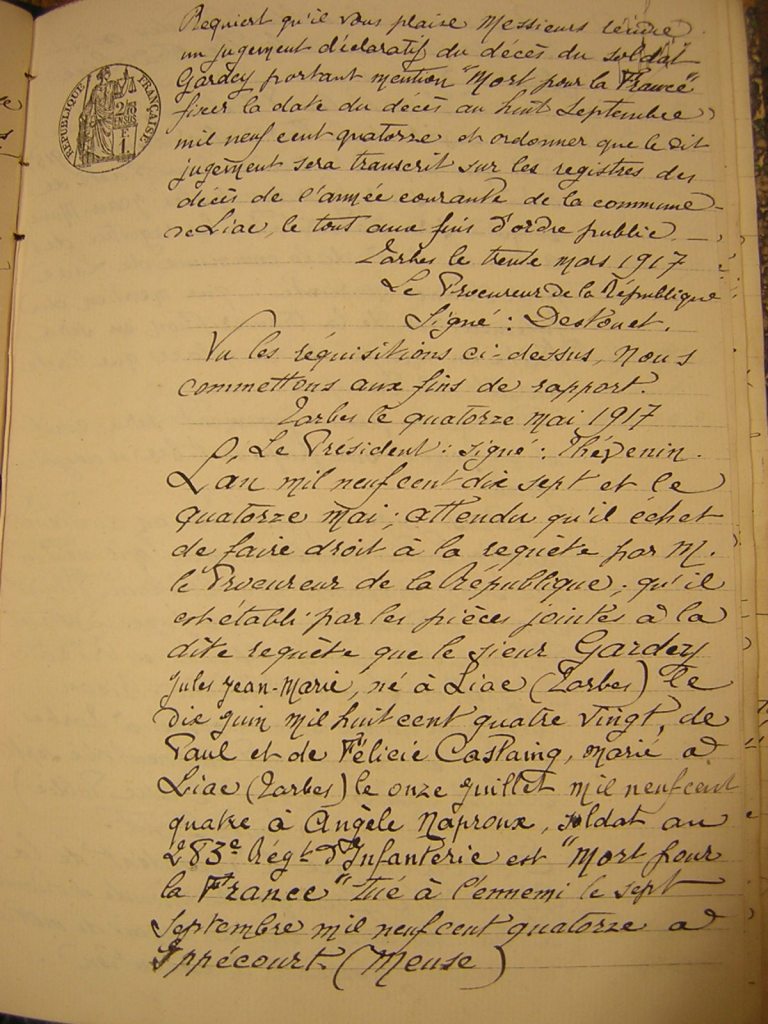 Requiert qu'il vous plaise Messieurs rendre
un jugement déclaratif du décès du soldat
Gardey portant mention "Mort pour la France"
fixer la date du décès au huit Septembre
mil neuf cent quatorze et ordonner que le dit
jugement sera transcrit sur les registres des
décès de l'année courante de la commune
de Liac, le tout aux fins d'ordre public.
Tarbes le trente mars 1917
Le Procureur de la République
Signé : Destouet.
Vu les réquisitions ci-dessus, Nous
commettons aux fins de rapport.
Tarbes le quatorze mai 1917
Le Président : signé : Thévenin.
L'an mil neuf cent dix sept et le
quatorze mai ; attendu qu'il échet
de faire droit à la requête par M.
le Procureur de la République ; qu'il
est établi par les pièces jointes à la
dite requête que le sieur Gardey
Jules Jean-Marie, né à Liac (Tarbes) le
dix juin mil huit cent quatre vingt, de
Paul et de Félicie Castaing, marié à
Liac (Tarbes) le onze juillet mil neuf cent
quatre à Angèle Naproux, soldat au
283e Régt d'Infanterie est "Mort pour
la France" tué à l'ennemi le sept
Septembre mil neuf cent quatorze à
Ippécourt (Meuse)
RÉPUBLIQUE FRANÇAISE